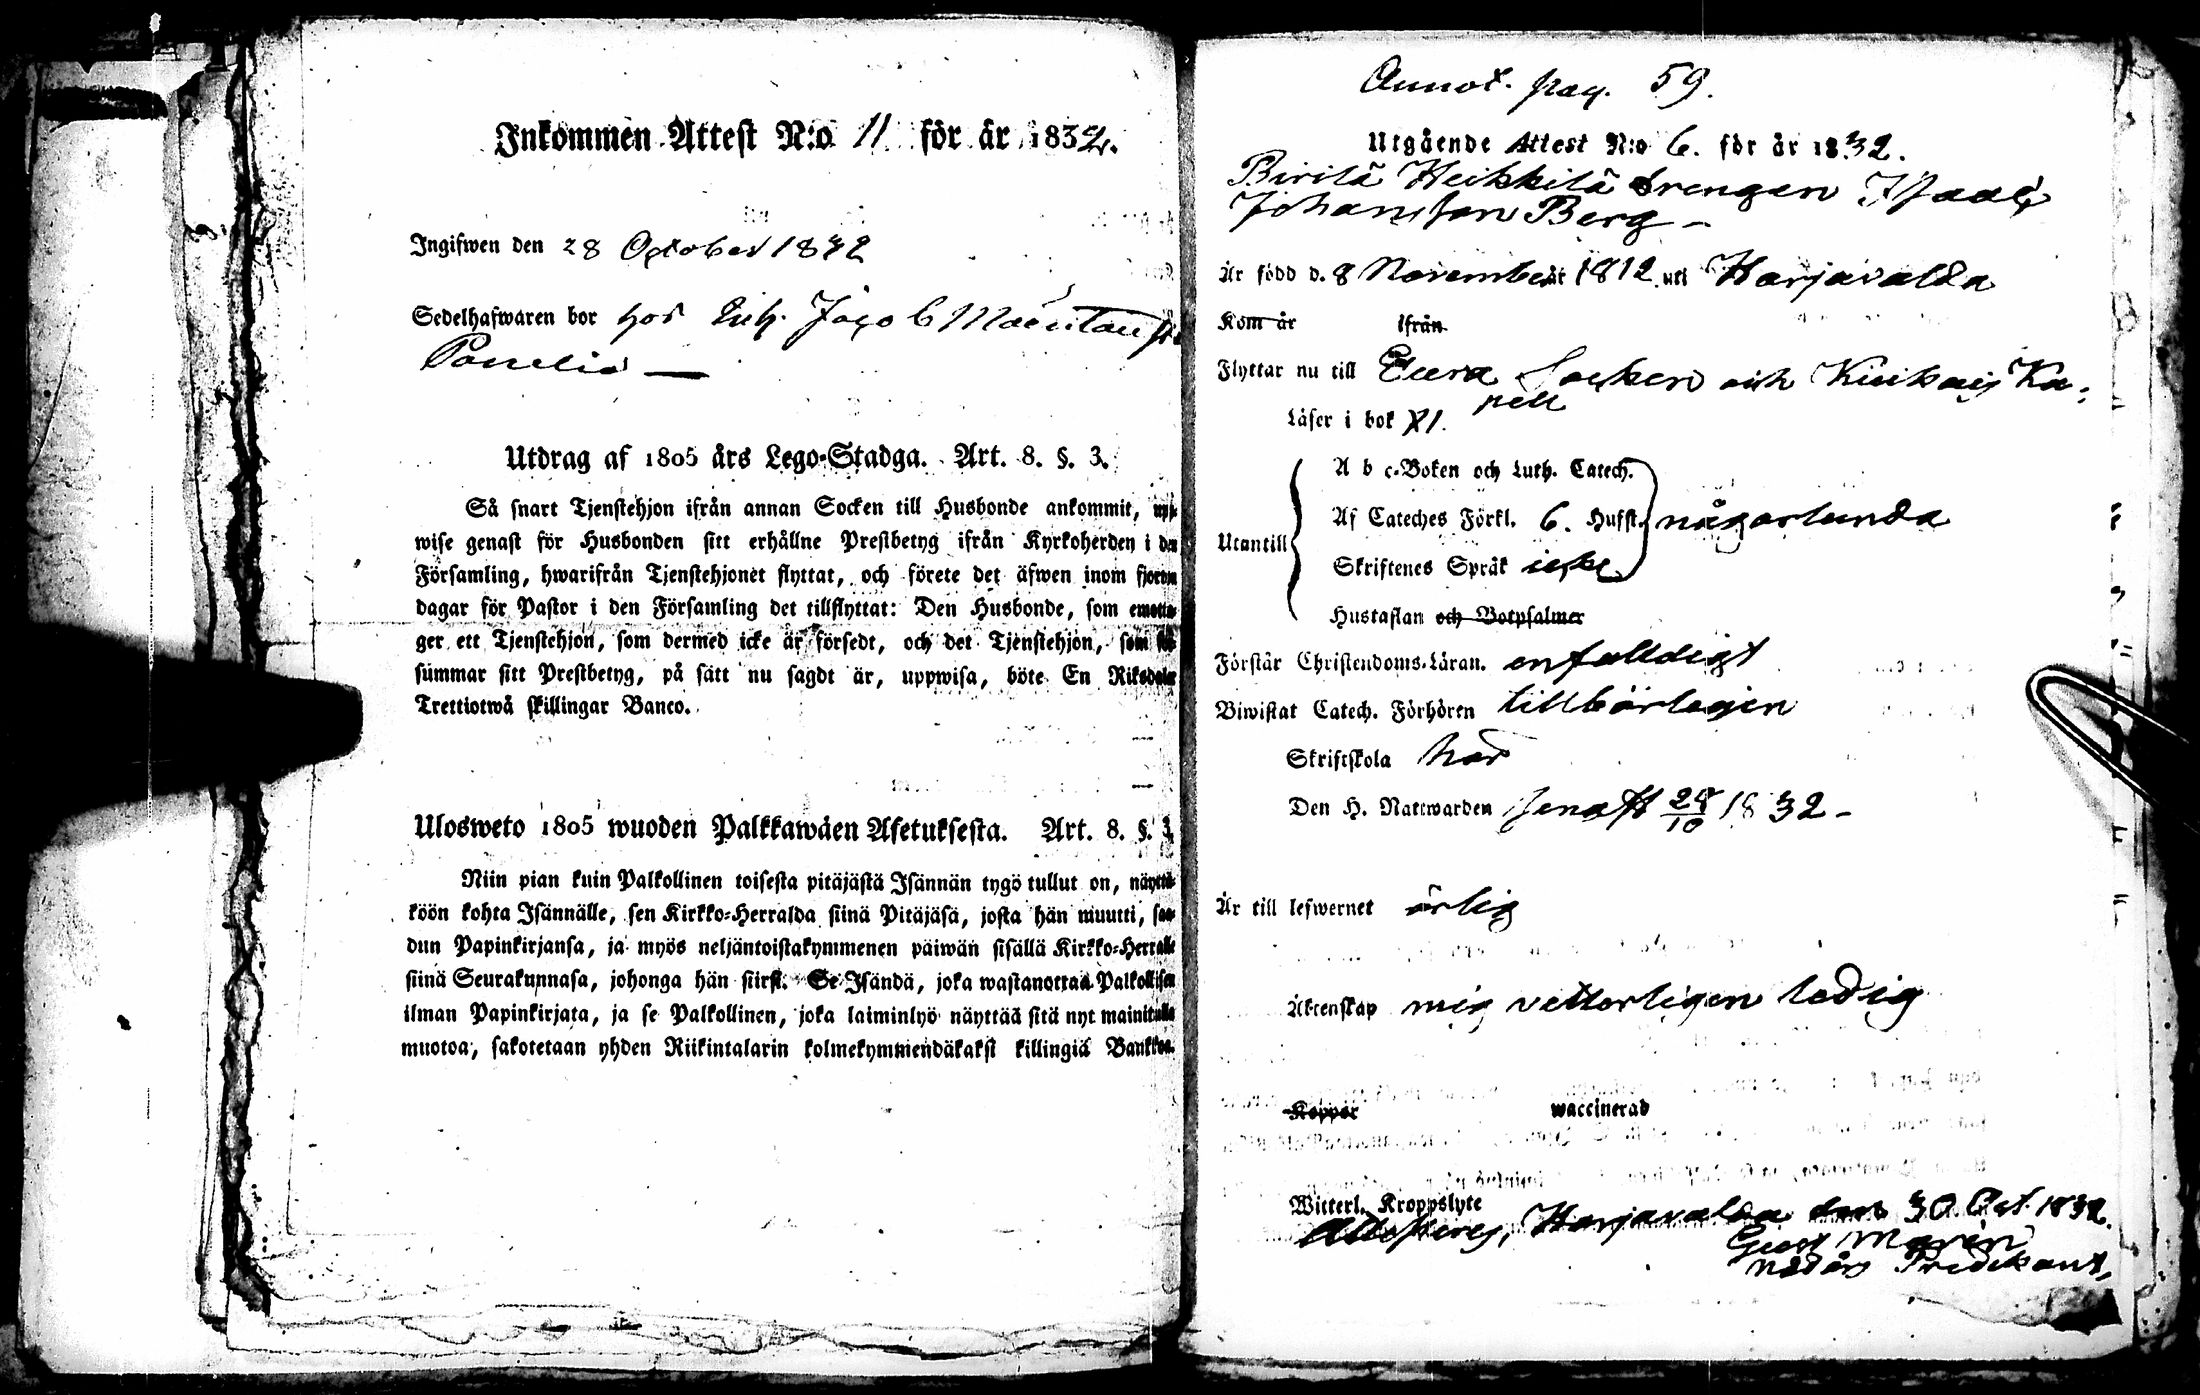 Inkommen Attest N:o 11 för år 1832.
Ingifwen den 28 October 1832
Sedelhafwaren bor hos Enk. Jacob
Panelia —
Utdrag af 1805 års Lego-Stadga. Art. 8. §. 3.
Så snart Tjenstehjon ifrån annan Socken till Husbonde ankommit, upp-
wise genast för Husbonden sitt erhållne Prestbetyg ifrån Kyrkoherden i den
Församling, hwarifrån Tjenstehjonet flyttat, och förete det äfwen inom fjorton
dagar för Pastor i den Församling det tillflyttat: Den Husbonde, som emotta-
ger ett Tjenstehjon, som dermed icke är försedt, och det Tjenstehjon, som för-
summar sitt Prestbetyg, på sätt nu sagdt är, uppwisa, böte En Riksdaler
Trettiotwå skillingar Banco.
Ulosweto 1805 wuoden Palkkawäen Asetuksesta. Art. 8. §. 3.
Niin pian kuin Palkollinen toisesta pitäjästä Isännän tygö tullut on, näyttä-
köön kohta Isännälle, sen Kirkko-Herralda siinä Pitäjäsä, josta hän muutti, saa-
dun Papinkirjansa, ja myös neljäntoistakymmenen päiwän sisällä Kirkko-Herralle
siinä Seurakunnasa, johonga hän siirsi. Se Isändä, joka wastanottaa Palkollisen
ilman Papinkirjata, ja se Palkollinen, joka laiminlyö näyttää sitä nyt mainitulla
muotoa, sakotetaan yhden Riikintalarin kolmekymmendäkaksi killingiä Bankkoa.
Annot. pag. 59.
Utgående Attest N:o 6. för år 1832.
Birilä Heikkilä drengen Isaac
Johansson Berg –
Är född d. 8 November år 1812 uti Harjavalda
Kom år ifrån
Flyttar nu till Eura Socken och Kiukais Ka-
pell
Läser i bok XI.
A b c-Boken och Luth. Catech.
Af Cateches Förkl. 6. Hufst. någorlunda
Utantill
Skriftenes Språk icke
Hustaflan och Botpsalmer
Förstår Christendoms-Läran. enfalldigt
Biwistat Catech. Förhören tillbörligen
Skriftskola har
Den H. Nattwarden senast 28/10 1832 –
Är till lefwernet ärlig
Äktenskap mig vetterligen ledig
Koppor waccinerad
Witterl. Kroppslyte
Attesteras, Harjavalda den 30 Oct. 1832.
Gust Marin
nådårs Predikant,